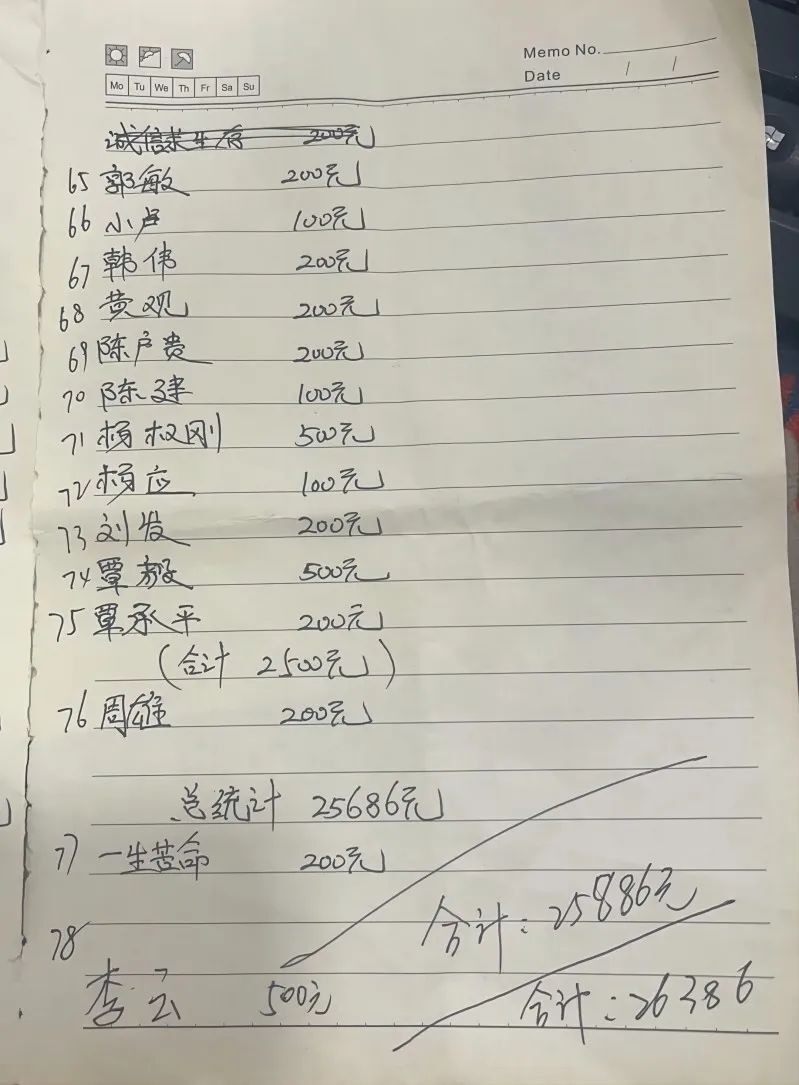 Memo No.
Mo Tu We Th Fr Sa Su
Date / /
诚信求生存 200元
65 郭敏 200元
66 小卢 100元
67 韩伟 200元
68 黄观 200元
69 陈户贵 200元
70 陈建 100元
71 杨权刚 500元
72 杨应 100元
73 刘发 200元
74 覃毅 500元
75 覃承平 200元
(合计 2500元)
76 周雄 200元
总统计 25686元
77 一生苦命 200元
合计:25886元
78
李云 500元 合计:26386